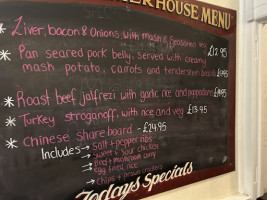 ERHOUSE MENU
* Liver, bacon & Onions, with mash & Seasonal veg £12.95
* Pan seared pork belly, served with creamy
mash potato, carrots and tenderstem
* Roast beef jalfrezi with garlic rice and poppadoms
* Turkey stroganoff, with rice and veg £13.95
* Chinese shareboard - £24.95
Includes → Salt + pepper ribs
→ Sweet + sour chicken
→ Beef + mushroom curry
→ egg fried rice
→ Chips + prawn crackers
Todays Specials